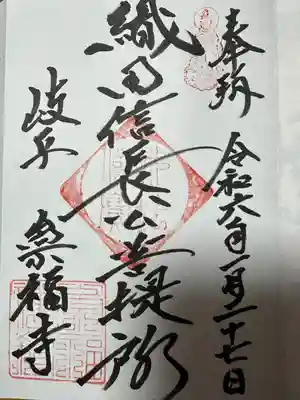 奉拝
令和六年一月二十七日
織田信長公菩提所
岐阜 崇福寺